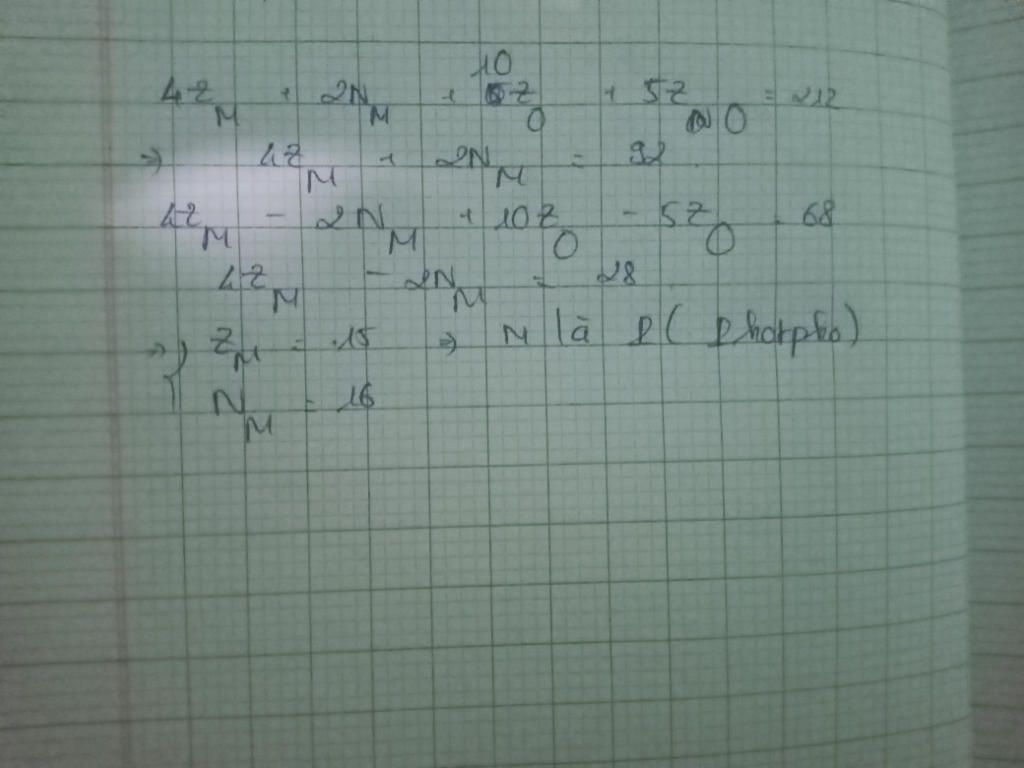 4Z_M + 2N_M + 10Z_O + 5Z_O = 212
=> 4Z_M + 2N_M = 92
4Z_M - 2N_M + 10Z_O - 5Z_O = 68
4Z_M - 2N_M = 28
=> { Z_M = 15 => M là P ( Photpho )
N_M = 16